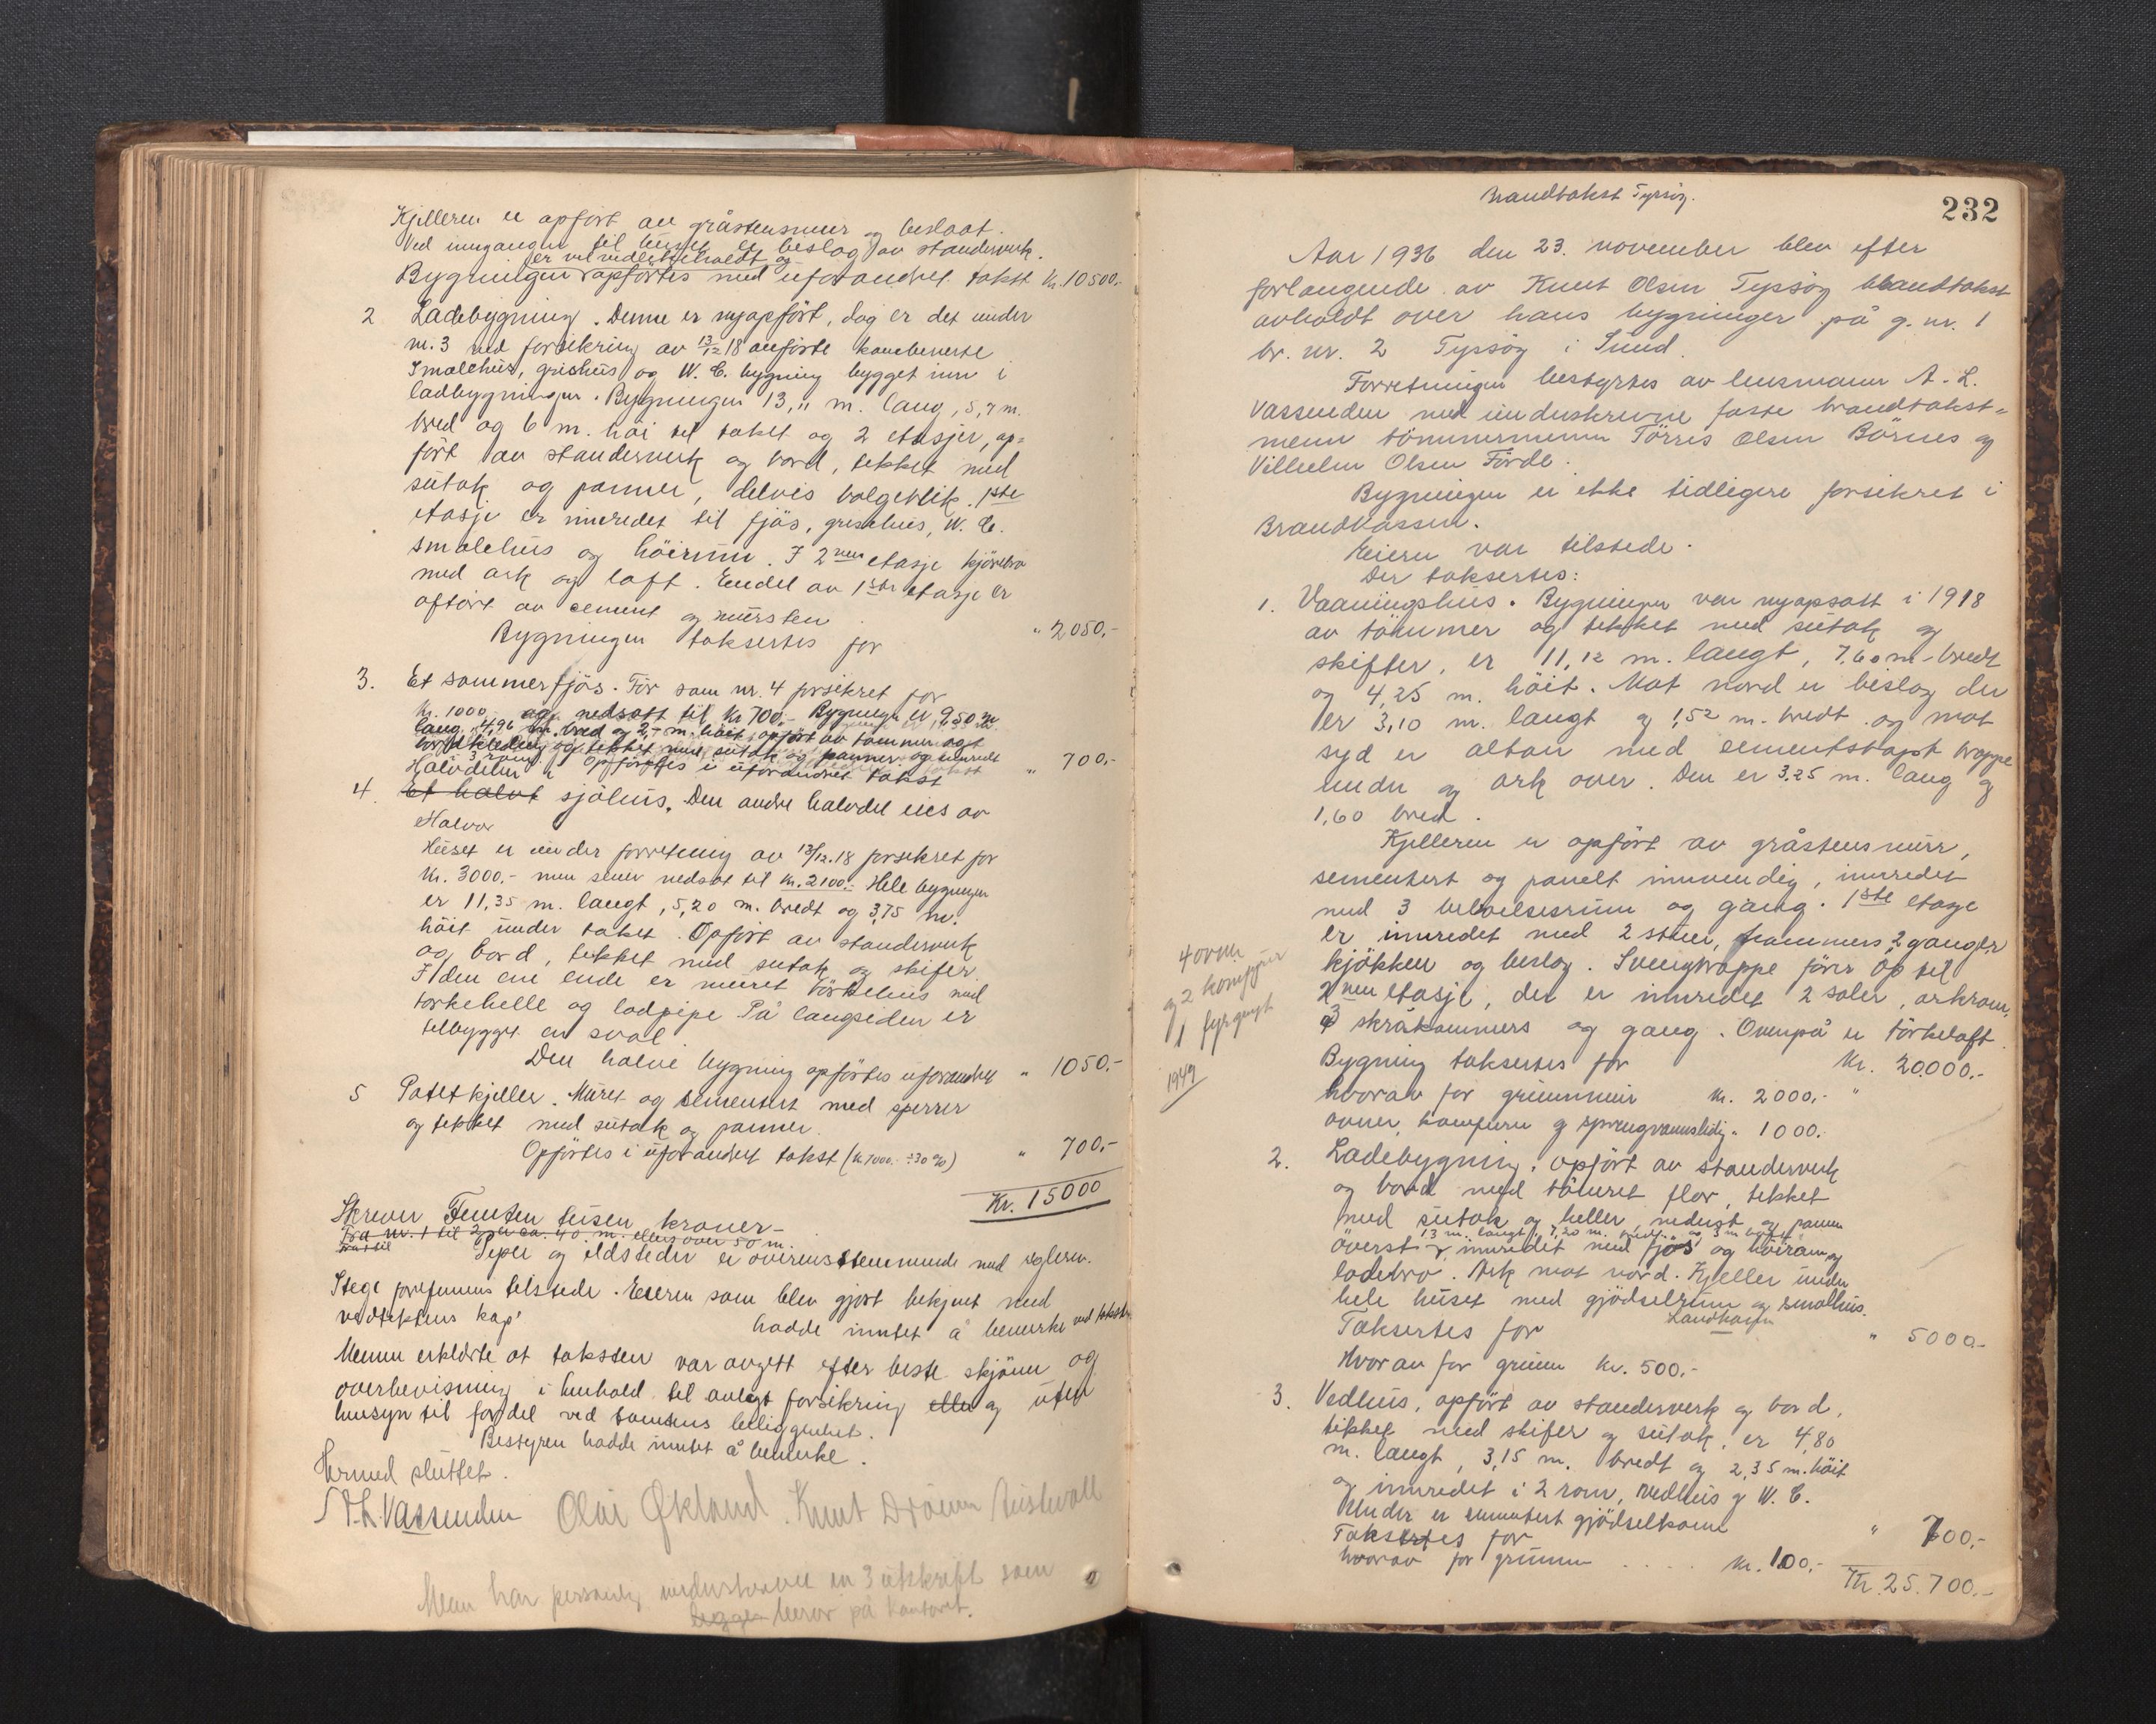 Kjelleren er opfört av gråstensmur og beslaat.
Ved inngangen til huset er beslag av standerverk.
er vel vedlikeholdt og
Bygningen opförtes med uforandret takst Kr. 10500.-
2 Ladebygning. Denne er nyopfört, dog er det under
nr. 3 ved forsikring av 13/12 18 anförte kombinerte
Smalehus, grishus og W. C. bygning bygget inn i
ladbygningen. Bygningen 13,11 m. lang, 5,7 m.
bred og 6 m. höi til taket og 2 etasjer, op-
fört av standerverk og bord, tekket med
sutak og panner, delvis bølgeblik. 1ste
etasje er inredet til fjös, grisehus, W. C.
smalehus og höirum. I 2nen etasje kjörebro
med ark og loft. Endel av 1ste etasje er
opfört av cement og mursten
Bygningen taksertes for " 2050,-
3. Et sommerfjös. För som nr. 4 forsikret for
Kr. 1000,- og nedsatt til Kr 700,- Bygningen er 9,50 m
lang, 4,96 m. bred og 2,- m. höit, opfört av tömmer og
bordkledning og tekket med sutak og panner og inredt
3 rom. Opförtes i uforandret takst " 700,-
Halvdelen
4. Et halvt sjöhus. Den andre halvdel eies av
Halvor
Huset er under forretning av 13/12.18 forsikret for
Kr. 3000.- men senere nedsat til Kr. 2100.- Hele bygningen
er 11,35 m. langt, 5,20 m. bredt og 3,75 m.
höit under taket. Opfört av standerverk
og bord, tekket med sutak og skifer.
I den ene ende er muret törkehus med
törkehelle og lodpipe På langsiden er
tilbygget en sval.
Den halve bygning opförtes uforandret " 1050.-
5 Potetkjeller. Muret og sementert med sperrer
og tekket med sutak og panner.
Opförtes i uforandret takst (Kr. 1000.- ÷ 30 %) " 700,-
Kr. 15000
Skrever Femten tusen kroner-
Fra nr. 1 til 2 er ca. 40 m. ellers over 50 m.
Piper og ildsteder er overensstemmende med reglem.
Stege forefunnes tilstede. Eieren som blev gjort bekjent med
vedtektens kap' hadde inntet å bemerke ved taksten
Mennene erklærte at taksten var avgitt efter beste skjönn og
overbevisning i henhold til avlagt forsikring eller og uten
hensyn til fordel ved tomtens beliggenhet.
Bestyreren hadde inntet å bemerke.
Hermed sluttet.
A. L. Vassenden Olai Økland. Knut Drönen
Men har personlig underskrevet en utskrift som
ligger beror på kontoret.
Brandtakst Tyssöy.
232
Aar 1936 den 23. november blev efter
forlangende av Knut Olsen Tyssöy brandtakst
avholdt over hans bygninger på g. nr. 1
br. nr. 2 Tyssöy i Sund.
Forretningen bestyrtes av lensmann A. L.
Vassenden med undeskrevne faste brandtakst-
menn tömmermenn Törres Olsen Börnes og
Vilhelm Olsen Förde.
Bygningen er ikke tidligere forsikret i
Brandkassen.
Eieren var tilstede.
Der taksertes:
1. Vaaningshus. Bygningen var nyopsatt i 1918
av tömmer og tekket med sutak og
skifter, er 11,12 m. langt, 7,60 m. bredt
og 4,25 m. höit. Mot nord er beslag der
er 3,10 m. langt og 1,52 m. bredt og mot
syd er altan med sementstöpt trappe
under og ark over. Den er 3,25 m. lang og
1,60 bred.
Kjelleren er opfört av gråstensmur,
sementert og panelt innvendig, inredet
med 3 bebvelsesrum og gang. 1ste etasje
er innredet med 2 stuer, kammers, 2 ganger
kjökken og beslag. Svingtrappe förer op til
2nen etasje, der er innredet 2 saler, arkrom,
3 skråkammers og gang. Ovenpå er törkeloft.
Bygning taksertes for Kr. 20.000.-
hvorav for grunnmur Kr. 2000,- "
ovner, komfurer og sprengvannsledig. " 1000.-
4 ovner
og 2 komfyrer
1 fyrgryt
1949
2. Ladebygning, opfört av standerverk
og bord med tömret flor, tekket
med sutak og heller nederst og panner
13 m. langt, 7,20 m. bredt og 3 m höit
överst innredet med fjös og höirum og
ladebro. Ark mot nord. Kjeller under
hele huset med gjödselrum og smalhus.
Taksertes for " 5000.-
Hvorav for grunn Kr. 500,-
3. Vedhus, opfört av standerverk og bord,
tekket med skifer og sutak, er 4,80
m. langt, 3,15 m. bredt og 2,35 m. höit
og innredet i 2 rom, vedhus og W. C.
Under er sementert gjödselkom
Taksertes for " 700,-
hvorav for grunnen . . . . Kr. 100,-
Kr. 25.700.-